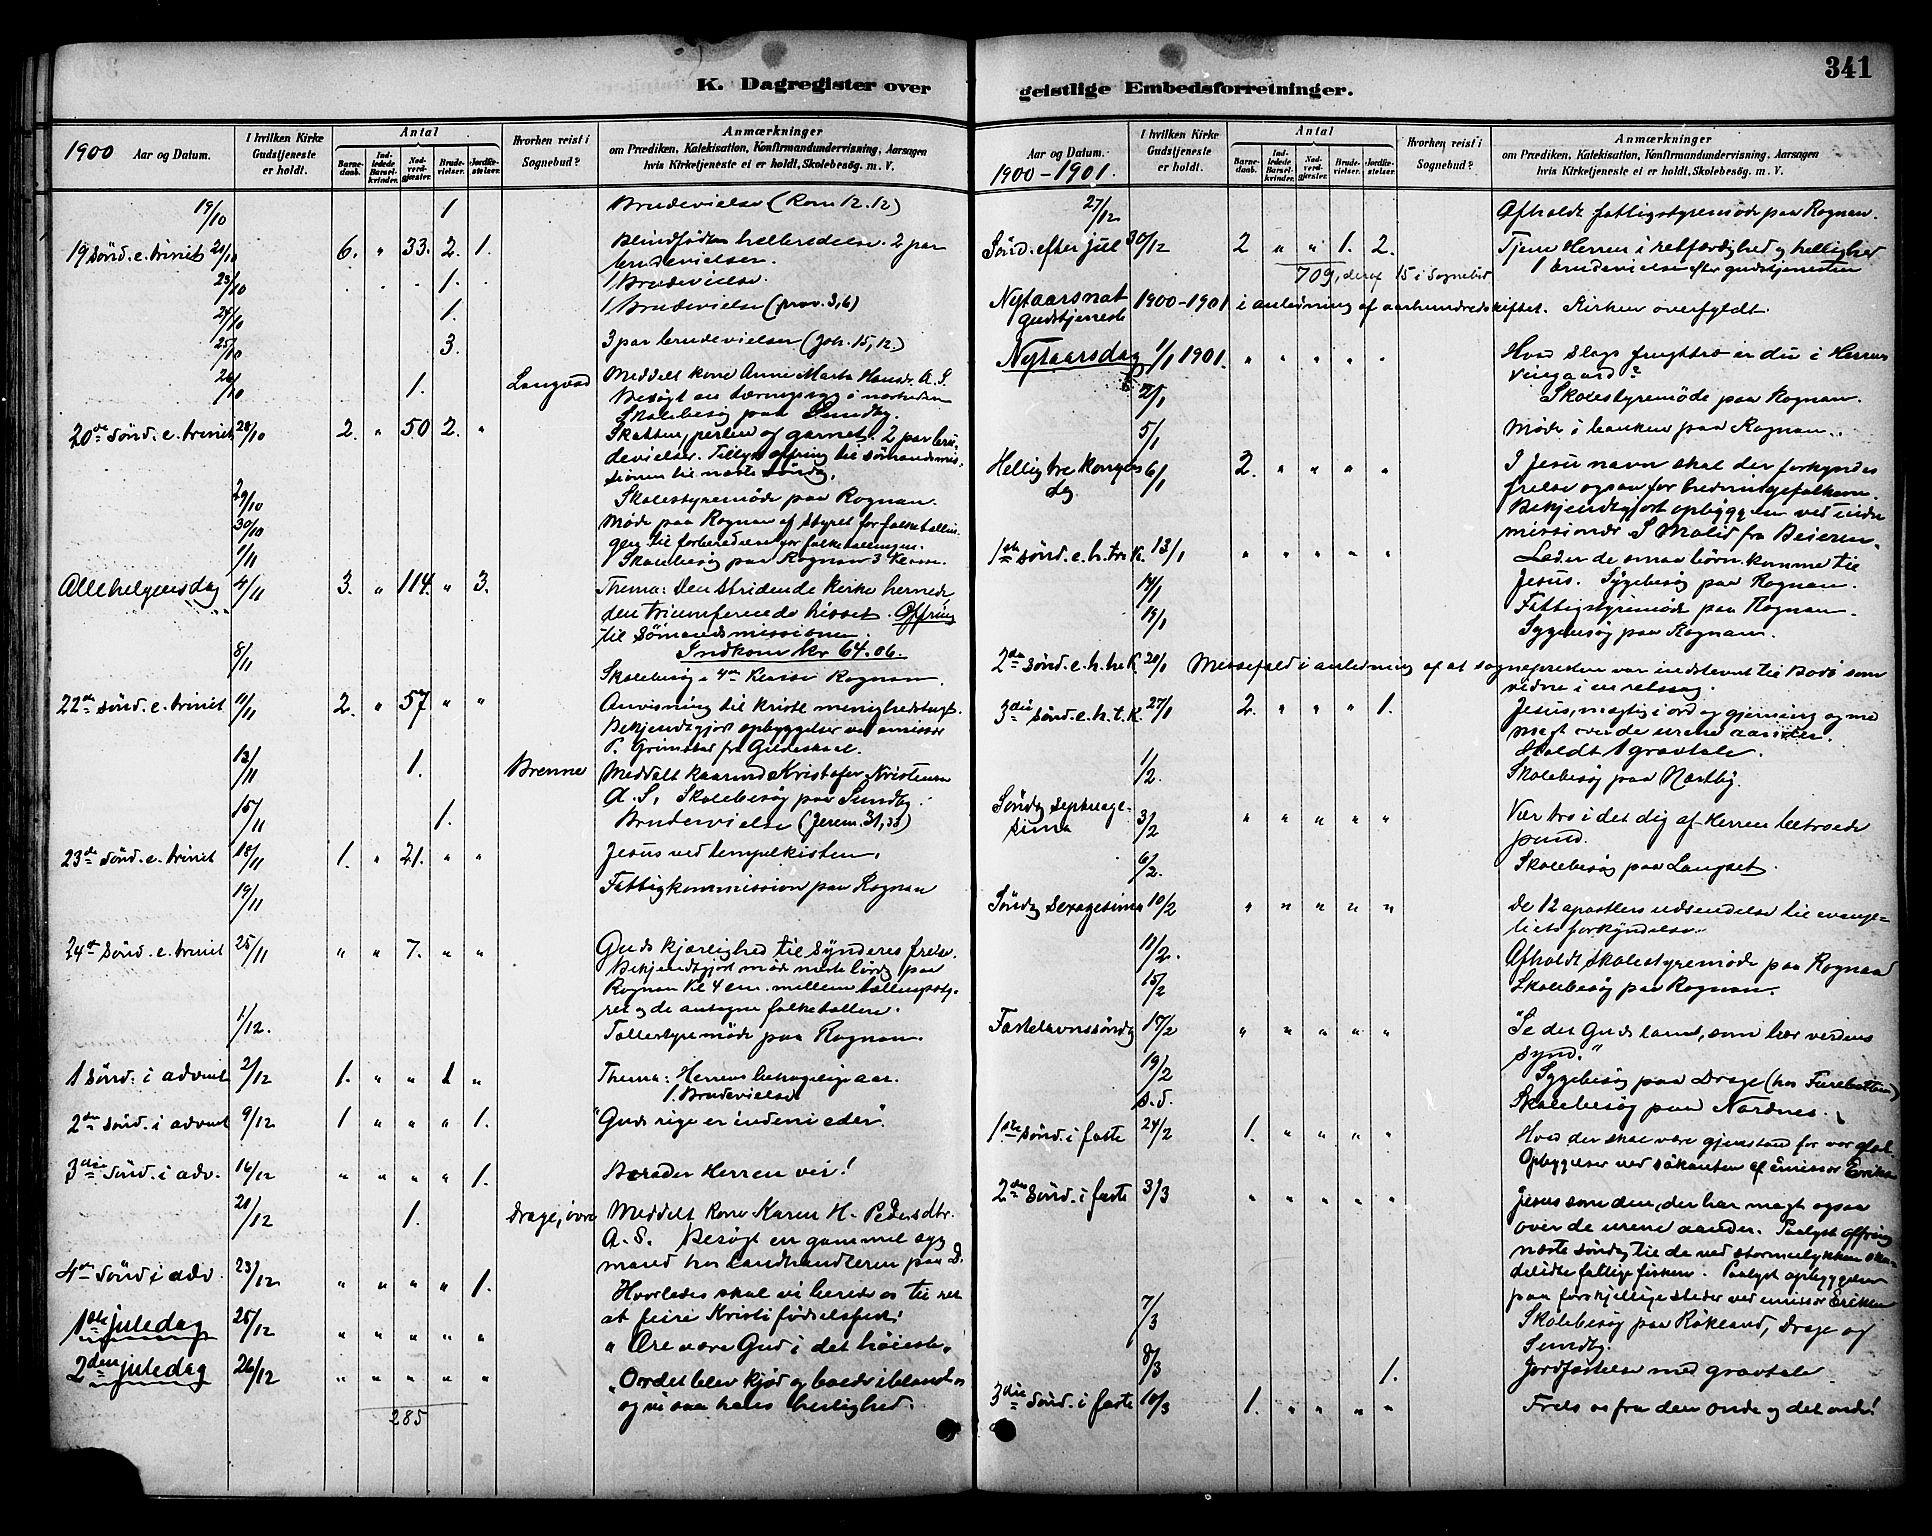 K. Dagregister over
1900 Aar og Datum.
I hvilken Kirke Gudstjeneste er holdt.
Antal
Barne-daab.
Ind-ledede Barsel-kvinder.
Nad-verd-gjæster.
Brude-vielser.
Jordfæ-stelser.
Hvorhen reist i Sognebud?
Anmærkninger
om Prædiken, Katekisation, Konfirmandundervisning, Aarsagen
hvis Kirketjeneste ei er holdt, Skolebesög. m. V.
19/10 1 Brudevielse (Rom 12.12)
19 Sönd. e. trinit 21/10 6. " 33. 2. 1. Blindfödtes helbredelse. 2 par
brudevielser.
23/10 1. 1 Brudevielse.
24/10 1. 1 Brudevielse (prov. 3,6)
25/10 3. 3 par brudevielser (Joh. 15, 12.)
26/10 1. Langvad Meddelt kone Anne Marta Hansdr. A. S.
Skolebesög paa Sundby.
20de Sönd. e. trinit 28/10 2. " 50 2. " Skatten, perlen og garnet. 2 par bru-
devielser. Tillyst ofring til sömandsmis-
sionen til næste Söndag.
29/10 Skolestyremöde paa Rognan.
30/10 Möde paa Rognan af styret for folketællin-
gen til forberedelse for folketællingen.
1/11 Skolebesög paa Rognan 3 klasse.
Allehelgensdag 4/11 3. " 114. " 3. Thema: Den stridende kirke hernede,
den triumferende hisset. Offring
til Sömandsmissionen.
Indkom kr 64.06.
8/11 Skolebesög i 4de klasse Rognan.
22de Sönd. e. trinit 11/11 2. " 57. " " Anvisning til kristl menighedstugt.
Bekjendtgjort opbyggelser ved emissær
P. Grimstad fra Gildeskaal.
13/11 1. Brenne Meddelt kaarmd Kristofer Kristensen
A. S. Skolebesög paa Sundby.
15/11 1. Brudevielse (Jerem. 31, 33)
23de Sönd. e. trinit 18/11 1. " 21. " " Jesus ved tempelkisten.
19/11 Fattigkommission paa Rognan
24de Sönd. e. trinit 25/11 " " 7. " " Guds kjærlighed til synderes frelse.
Bekjendtgjort möde næste lördag paa
Rognan kl 4 em. mellem tællingssty-
ret og de antagne folketællere.
1/12. Tællestyremöde paa Rognan.
1 Sönd. i advent 2/12 1. " " 1 " Thema: Herrens behagelige aar.
1. Brudevielse
2den Sönd. i advent 9/12 1 " " " 1. "Guds rige er inden i eder".
3die Sönd. i adv. 16/12 " " " " 1. Bereder Herrens vei!
21/12 1. Drage, övre Meddelt kone Karen H. Pedersdtr.
A. S. Besögt en gammel syg
mand hos landhandleren paa D.
4de Sönd i adv. 23/12 " " " " 1. Hvorledes skal vi berede os til ret
at feire Kristi födselsfest!
1ste juledag 25/12 " " " " " "Ære være Gud i det höieste"
2den juledag 26/12 " " " " " "Ordet blev kjöd og boede iblandt os
og vi saa hans herlighed.
285
341
geistlige Embedsforretninger.
Aar og Datum.
1900-1901.
I hvilken Kirke Gudstjeneste er holdt.
Antal
Barne-daab.
Ind-ledede Barsel-kvinder.
Nad-verd-gjæster.
Brude-vielser.
Jordfæ-stelser.
Hvorhen reist i Sognebud?
Anmærkninger
om Prædiken, Katekisation, Konfirmandundervisning, Aarsagen
hvis Kirketjeneste ei er holdt, Skolebesög. m. V.
27/12 Afholdt fattigstyremöde paa Rognan.
Sönd. efter jul 30/12 2 " " 1. 2. Tjene Herren i retfærdighed og hellighed
709, deraf 15 i Sognebud 1 brudevielse efter gudstjenesten
Nytaarsnat 1900-1901 i anledning af aarhundredskiftet. Kirken overfyldt.
gudstjeneste
Nytaarsdag 1/1 1901. " " " " " Hvad slags frugttræ er du i Herrens
vingaard?
2/1 Skolestyremöde paa Rognan.
5/1 Möde i banken paa Rognan.
Hellig tre konges 6/1 2. " " " " I Jesu navn skal der forkyndes
dag frelse ogsaa for hedningefolkene.
Bekjendtgjort opbyggelsen ved indre
missionær S. Molid fra Beieren.
1ste Sönd. e. h. tre K. 13/1 " " " " " Lader de smaa börn komme til
Jesus. Sygebesög paa Rognan.
14/1 Fattigstyremöde paa Rognan.
19/1 Sygebesög paa Rognan.
2den Sönd. e. h. tre K. 20/1 Messefald i anledning af at sognepresten var indstevnt til Bodö som
vidne i en retssag.
3die Sönd. e. h. t. K. 27/1 2. " " " 1. Jesus, mægtig i ord og gjerning og med
magt over de urene aander.
Holdt 1 gravtale.
1/2. Skolebesög paa Næstby.
Söndag septuage- 3/2 " " " " " Vær tro i det dig af Herren betroede
sima pund.
6/2. Skolebesög paa Langset.
Söndag Sexagesima 10/2 " " " " " De 12 apostlers udsendelse til evange-
liets forkyndelse.
11/2. Afholdt skolestyremöde paa Rognan
15/2 Skolebesög paa Rognan.
Fastelavnssöndag 17/2 " " " " " "Se det Guds lam, som bær verdens
synd."
19/2 Sygebesög paa Drage (hos Furebotten)
s. d. Skolebesög paa Nordnes.
1ste Sönd. i faste 24/2 1. " " " " Hvad der skal være gjenstand for vor
Opbyggelser ved af emissær Eriksen
2den Sönd. i faste 3/3 " " " " " Jesus som den, der har magt ogsaa
over de urene aander. Paalyst ofring
næste söndag til de ved stormulykken ska-
delidte fattige fiskere. Paalyst opbyggelser
paa forskjellige steder ved emissær Eriksen
7/3 Skolebesög paa Rökland, Drage og
Sundby.
8/3 1. Jordfæstelse med gravtale.
3die Sönd. i faste 10/3 1. " " " " Frels os fra den onde og det onde!